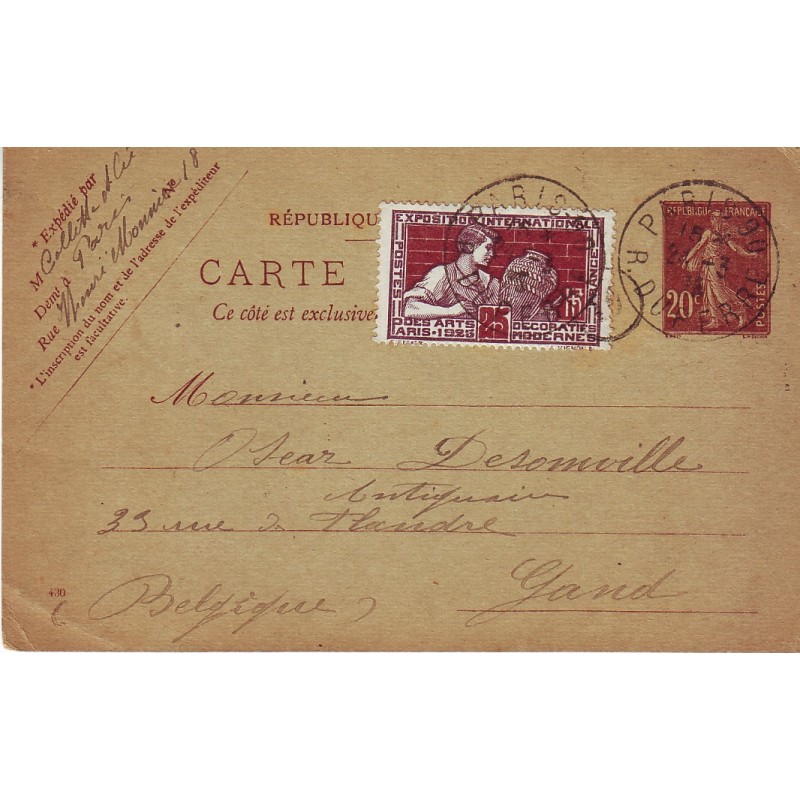 * Expédié par
M Collette et Cie
Demt à Paris
Rue Henri Monnier No 18
* L'inscription du nom et de l'adresse de l'expéditeur
est facultative.
RÉPUBLIQU
CARTE
Ce côté est exclusive
EXPOSITION INTERNATIONALE
POSTES
FRANCE
25
DES ARTS DECORATIFS
PARIS-1925 MODERNES
PARIS
R. DU
PARIS 90
15
R. DU
REPUBLIQUE FRANÇAISE
20c
POSTES
Monsieur
Oscar Desomville
Antiquaire
33 rue de Flandre
Gand
Belgique
430